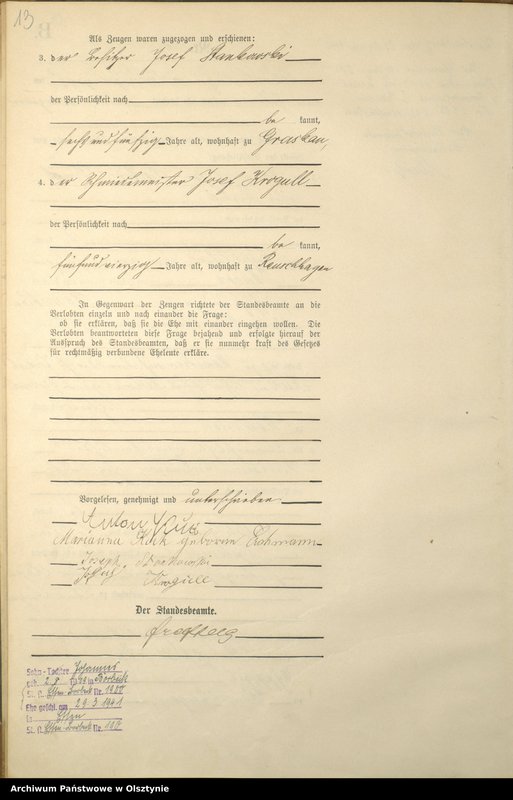 13
Als Zeugen waren zugezogen und erschienen:
3. der Besitzer Josef Stankowski
der Persönlichkeit nach
be kannt,
sechsundfünfzig Jahre alt, wohnhaft zu Graskau,
4. der Schmiedemeister Josef Krogull
der Persönlichkeit nach
be kannt,
fünfundvierzig Jahre alt, wohnhaft zu Reuschhagen
In Gegenwart der Zeugen richtete der Standesbeamte an die
Verlobten einzeln und nach einander die Frage:
ob sie erklären, daß sie die Ehe mit einander eingehen wollen. Die
Verlobten beantworteten diese Frage bejahend und erfolgte hierauf der
Ausspruch des Standesbeamten, daß er sie nunmehr kraft des Gesetzes
für rechtmäßig verbundene Eheleute erkläre.
Vorgelesen, genehmigt und unterschrieben
Anton
Marianna Kuck geborene Lohmann
Joseph
Krogull
Der Standesbeamte.
Sohn - Tochter Johannes
geb. 2.8. in Borbeck
St. A. Essen-Borbeck Nr.
Ehe geschl. am 29.3.1941
in Essen
St. A. Essen-Borbeck Nr.
Archiwum Państwowe w Olsztynie